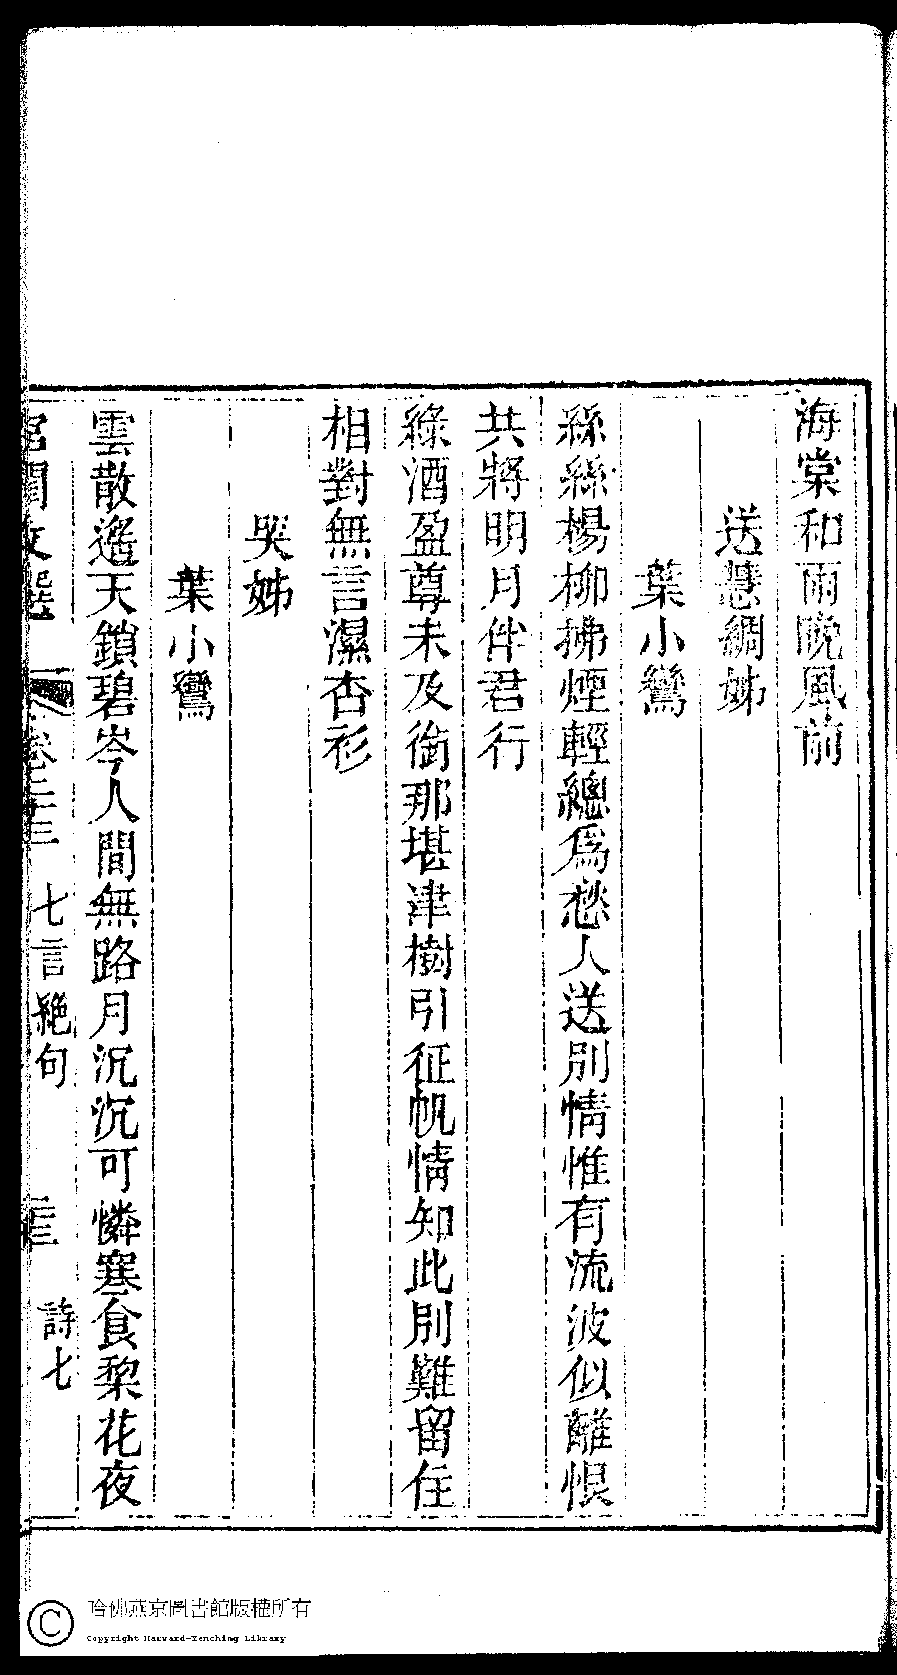 海棠和雨晚風前
送蕙綢姊
葉小鸞
絲絲楊柳拂煙輕總爲愁人送別情惟有流波似離恨
共將明月伴君行
綠酒盈尊未及銜那堪津樹引征帆情知此別難留住
相對無言濕杏衫
哭姊
葉小鸞
雲散遙天鎖碧岑人間無路月沉沉可憐寒食梨花夜
宮閨文選 卷二十三 七言絕句 詩七
哈佛燕京圖書館版權所有
Copyright Harvard-Yenching Library